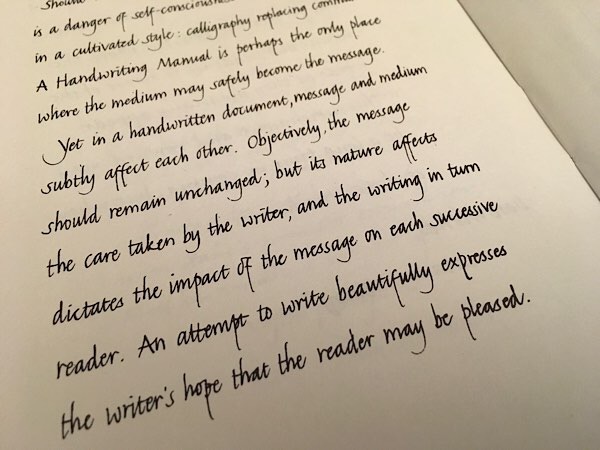 should
is a danger of self-consciousness
in a cultivated style: calligraphy replacing
A Handwriting Manual is perhaps the only place
where the medium may safely become the message.
Yet in a handwritten document, message and medium
subtly affect each other. Objectively, the message
should remain unchanged; but its nature affects
the care taken by the writer, and the writing in turn
dictates the impact of the message on each successive
reader. An attempt to write beautifully expresses
the writer's hope that the reader may be pleased.